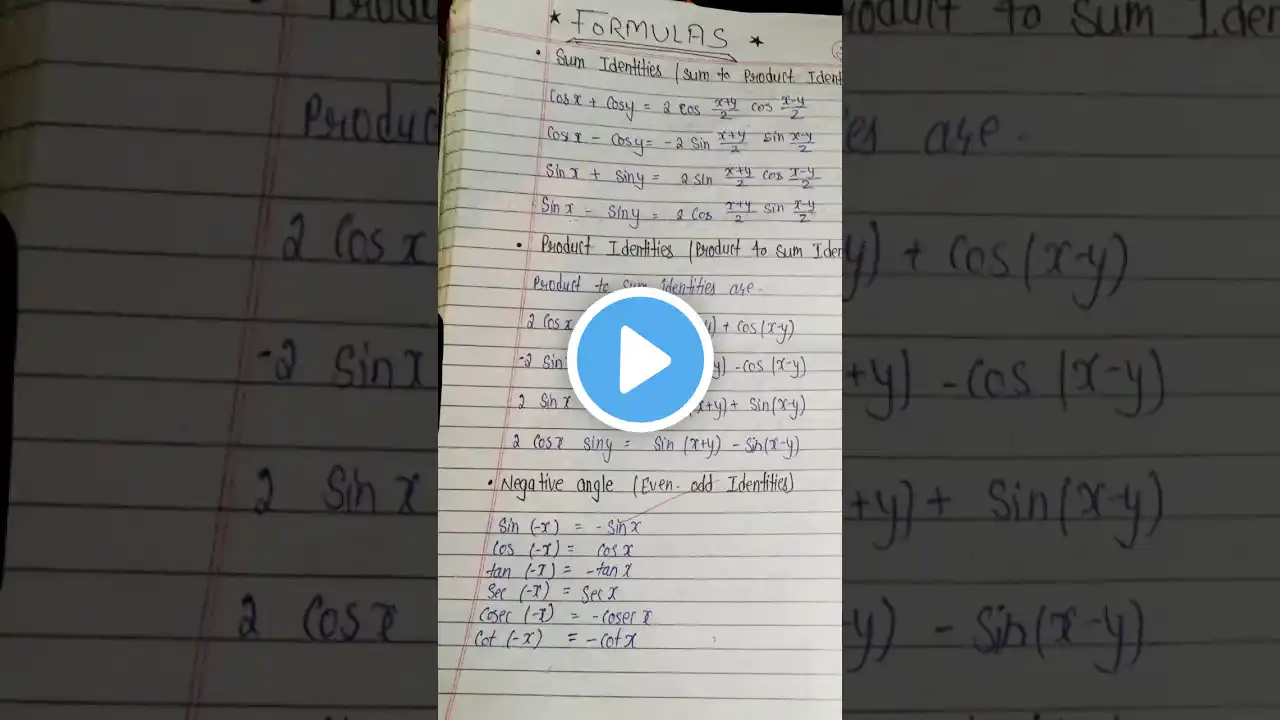 ★ FORMULAS ★
• Sum Identities (sum to Product Ident
Cosx + Cosy = 2 cos x+y/2 cos x-y/2
Cosx - Cosy = -2 Sin x+y/2 sin x-y/2
Sinx + Siny = 2 sin x+y/2 cos x-y/2
Sinx - Siny = 2 Cos x+y/2 sin x-y/2
• Product Identities (Product to sum Iden
Product to sum identities are.
2 Cosx y) + cos(x-y)
-2 Sin y) - cos (x-y)
2 Sinx x+y) + Sin(x-y)
2 Cosx siny = Sin (x+y) - Sin(x-y)
• Negative angle (Even-odd Identities)
Sin (-x) = -Sinx
Cos (-x) = Cosx
tan (-x) = -tanx
Sec (-x) = Secx
Cosec (-x) = -Cosec x
Cot (-x) = -Cotx